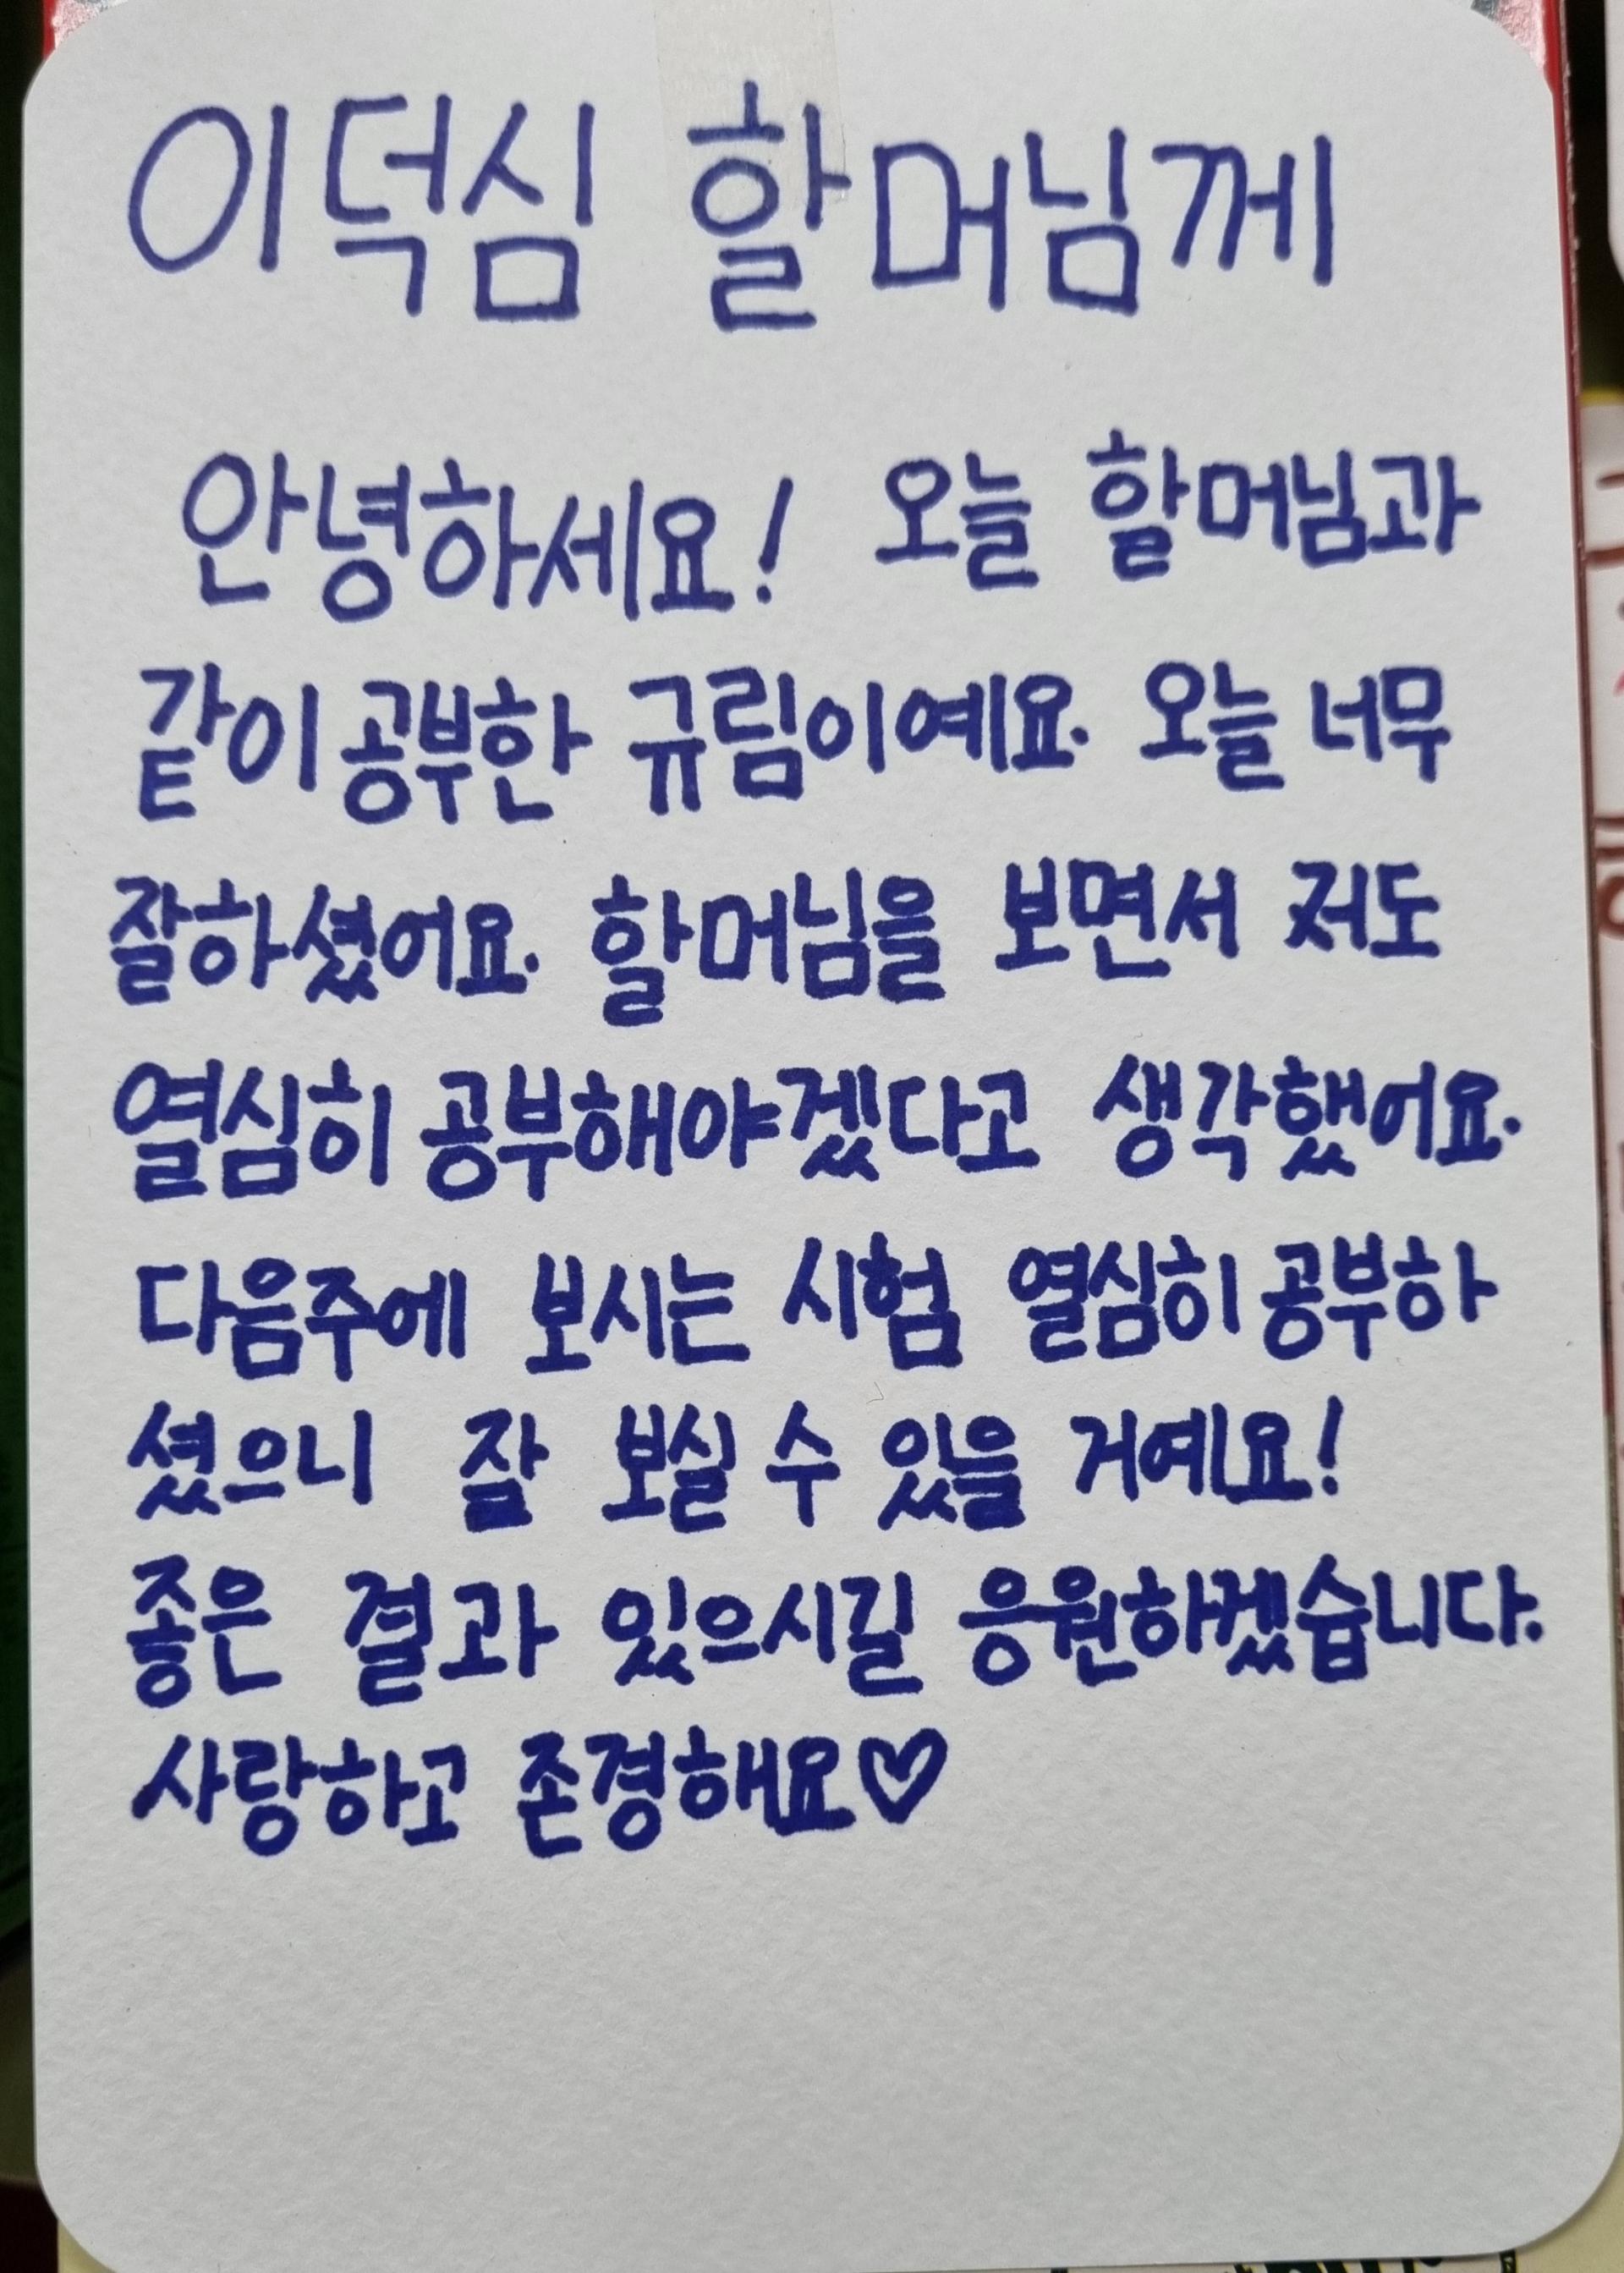 이덕심 할머님께
안녕하세요! 오늘 할머님과
같이 공부한 규림이예요. 오늘 너무
잘하셨어요. 할머님을 보면서 저도
열심히 공부해야겠다고 생각했어요.
다음주에 보시는 시험 열심히 공부하
셨으니 잘 보실 수 있을 거예요!
좋은 결과 있으시길 응원하겠습니다.
사랑하고 존경해요♡